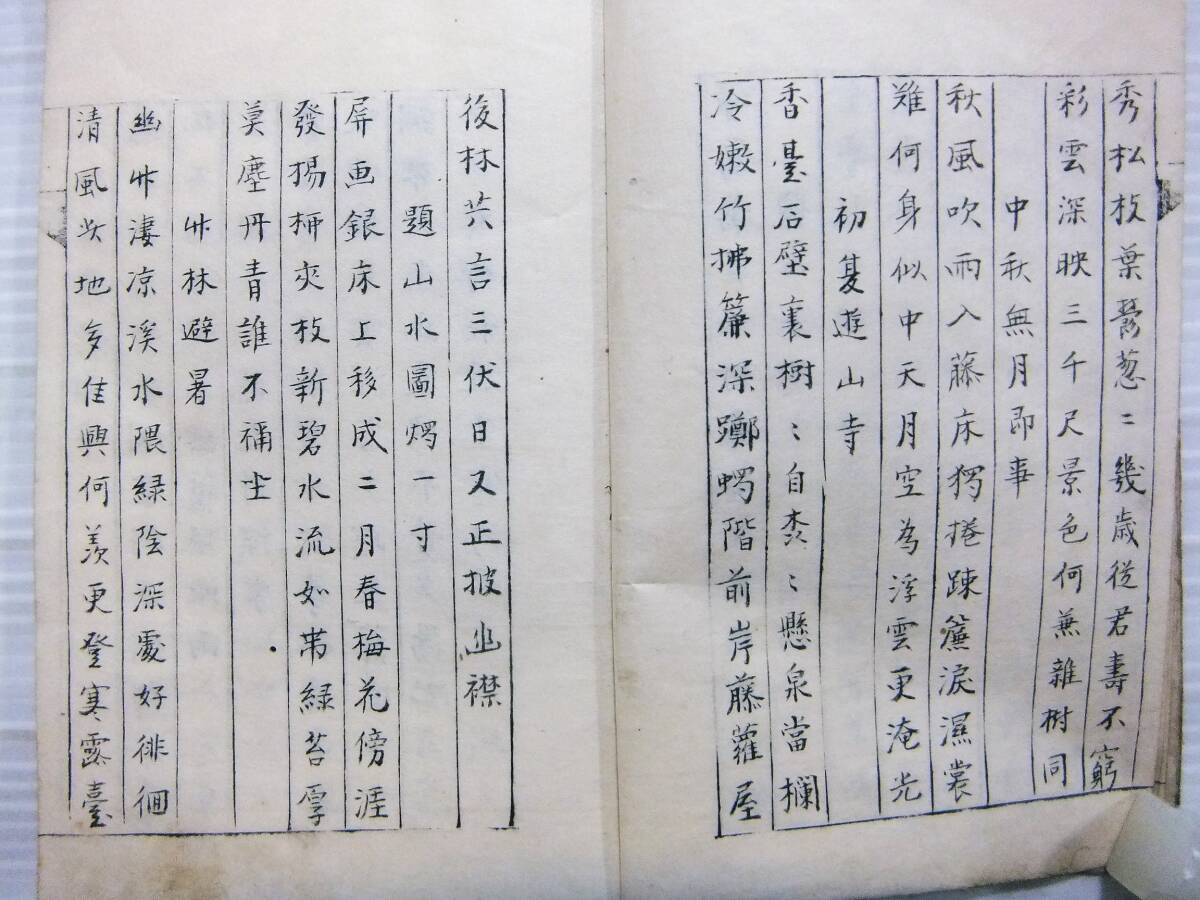 秀松枝葉鬱葱〻幾歳従君壽不窮
彩雲深映三千尺景色何兼雜树同
中秋無月即事
秋風吹雨入藤床獨捲踈簾淚濕裳
难何身似中天月空為浮雲更淹光
初夏遊山寺
香臺石壁裏樹〻自柰〻懸泉當欄
冷嫩竹拂簾深躑蠋階前岸藤蘿屋
後林共言三伏日又正披幽襟
題山水圖燭一寸
屏画銀床上移成二月春梅花傍涯
發楊柳夾枝新碧水流如帯緑苔厚
莫塵丹青誰不稱尘
竹林避暑
幽竹凄凉溪水隈緑陰深處好徘徊
清風此地多佳興何羨更登寒露臺